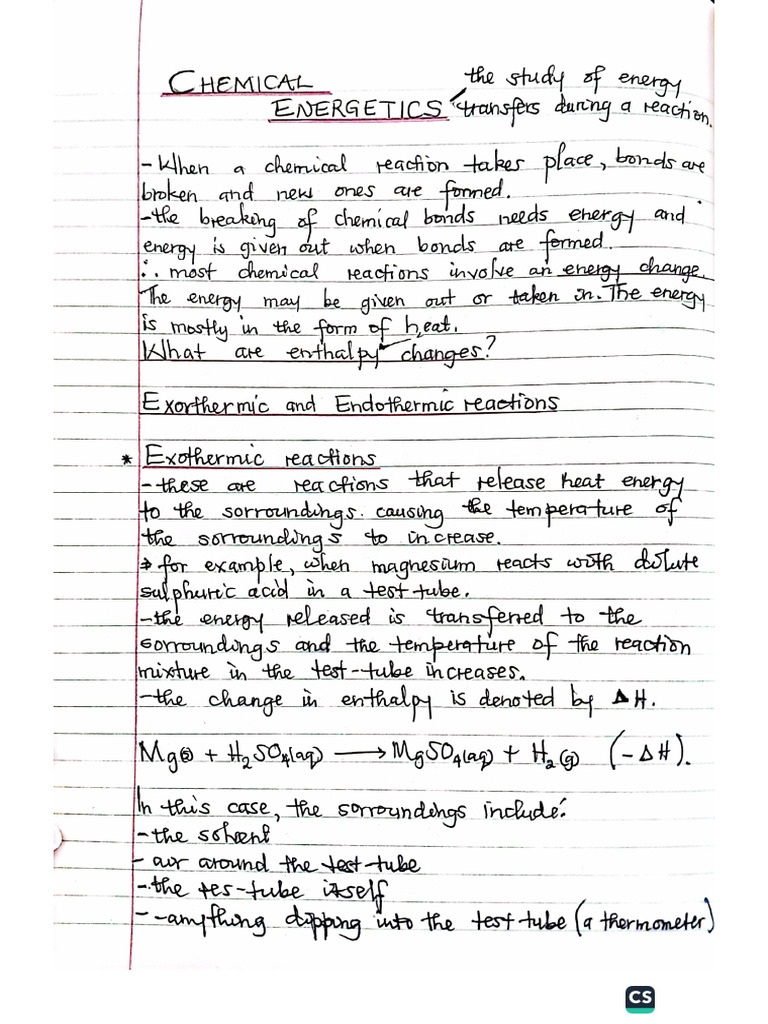 CHEMICAL
ENERGETICS
the study of energy
transfers during a reaction.
- When a chemical reaction takes place, bonds are
broken and new ones are formed.
- the breaking of chemical bonds needs energy and
energy is given out when bonds are formed.
∴ most chemical reactions involve an energy change.
The energy may be given out or taken in. The energy
is mostly in the form of heat.
What are enthalpy changes?
Exorthermic and Endothermic reactions
* Exothermic reactions
- these are reactions that release heat energy
to the sorroundings causing the temperature of
the sorroundings to increase.
→ for example, when magnesium reacts with dilute
sulphuric acid in a test tube.
- the energy released is transferred to the
sorroundings and the temperature of the reaction
mixture in the test-tube increases.
- the change in enthalpy is denoted by ΔH.
Mg(s) + H₂SO₄(aq) → MgSO₄(aq) + H₂(g) (-ΔH).
In this case, the sorroundings include:
- the solvent
- air around the test-tube
- the tes-tube itself
- - anything dipping into the test tube (a thermometer)
CS